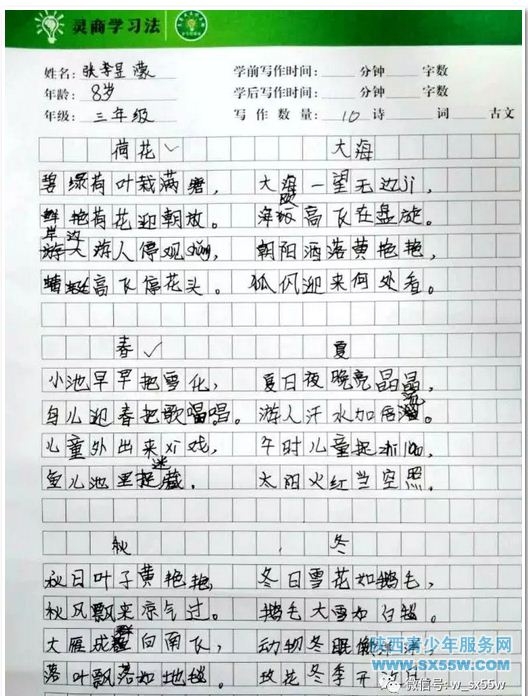 灵商学习法
姓名: 张李昱濛 学前写作时间: 分钟 字数
年龄: 8岁 学后写作时间: 分钟 字数
年级: 三年级 写作数量: 10 诗 词 古文
荷花 大海
碧绿荷叶栽满塘, 大海一望无边ji,
鲜艳荷花迎朝放。 海鸥高飞在盘旋。
岸边游人停观shǎng, 朝阳洒落黄艳艳,
蜻蜓高飞停花头。
春 夏
小池早早把雪化, 夏日夜晚亮晶晶,
鸟儿迎春把歌唱。 游人汗水如
儿童外出来xi戏, 午时儿童捉
鱼儿池里捉迷藏。 太阳火红当空照。
秋 冬
秋日叶子黄艳艳, 冬日雪花如鹅毛,
秋风飘来凉气过。 鹅毛大雪如白毯。
大雁成群向南飞, 动物冬眠
落叶飘落如地毯。 玫花冬季开
陕西青少年服务网
www.sx55w.com
微信号: w_sx55w